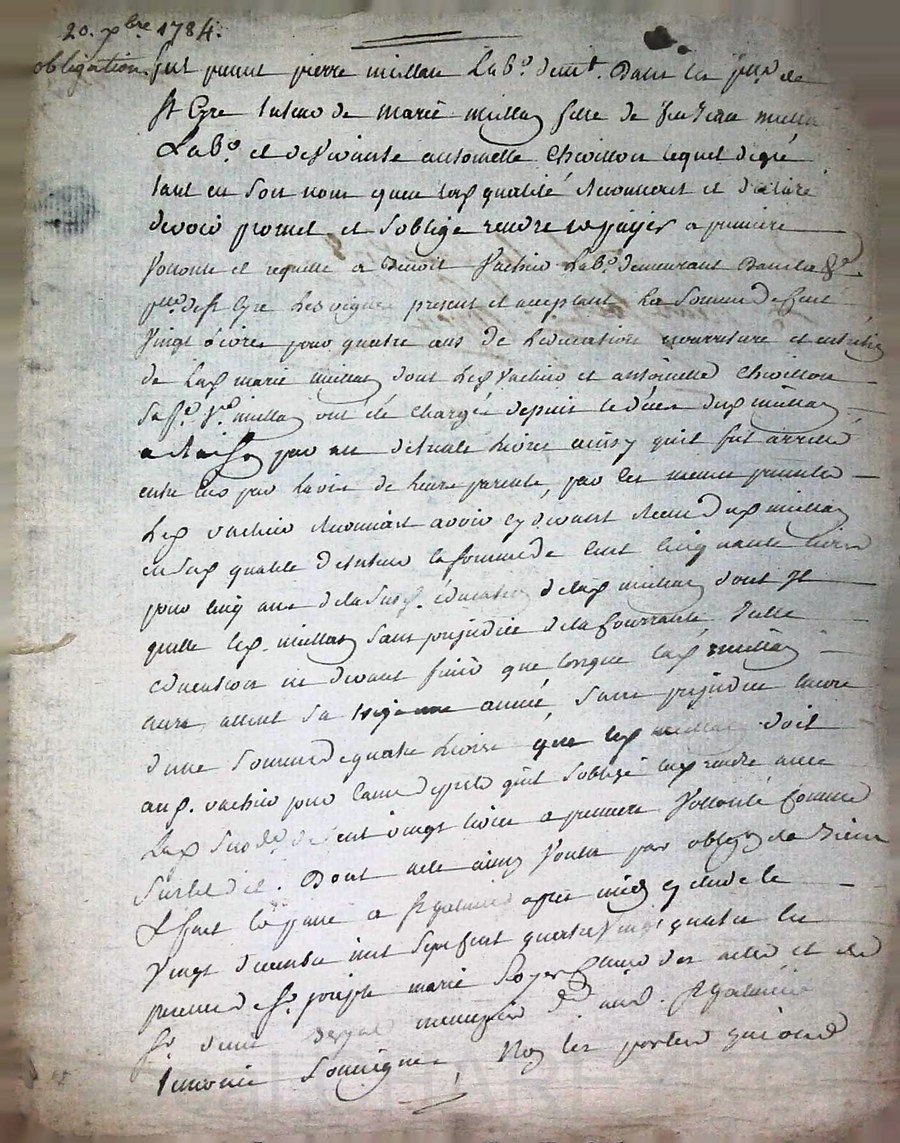 20. xbre 1784.
obligation. fut present pierre millan Lab.r demt. Dans la psse de
St Cyre tuteur de marie millan fille de feu Jean millan
Lab.r et de vivante antoinette Chovillon lequel de gré
tant en son nom quen lad qualité reconnoit et declare
devoir promet et soblige rendre et payer a premiere
vollonté et requise a Benoit Vachier Lab.r demeurant Dans lad
psse de St Cyre Les vignes present et acceptant La Somme de Cent
vingt livres pour quatre ans de Leducation nourriture et entretien
de Lad marie millan dont Led Vachier et antoinette Chovillon
sa fe. ve. millan ont été chargé depuis le décés dud millan
a raison par an de trente livres ainsy quil fut arreté
entre eux par lavis de leurs parents, par les mesmes presentes
Led vachier reconnoit avoir cy devant receu dud millan
en sad qualité de tuteur la somme de Cent Cinquante livres
pour cinq ans de la susd. education de lad millan dont Il
quitte led millan sans prejudice de la Courrante, Celle
education ne devant finir que lorsque lad millan
aura atteint sa année, sans prejudice encore
dune Somme de quatre livres que led millan doit
aud. vachier pour lanne quil soblige luy rendre avec
Lad Somme de Cent vingt livres a premiere vollonté Comme
Sus est dit. Dont acte ainsy voulu par oblign de biens
& fait lu passé a St galmier apres midy etude le
vingt decembre mil sept Cent quatre vingt quatre en
presence de Sr. joseph marie Royer Clerc des actes et de
Sr. menuizier dud. St galmier
temoins Soussignés, Non les parties qui ont